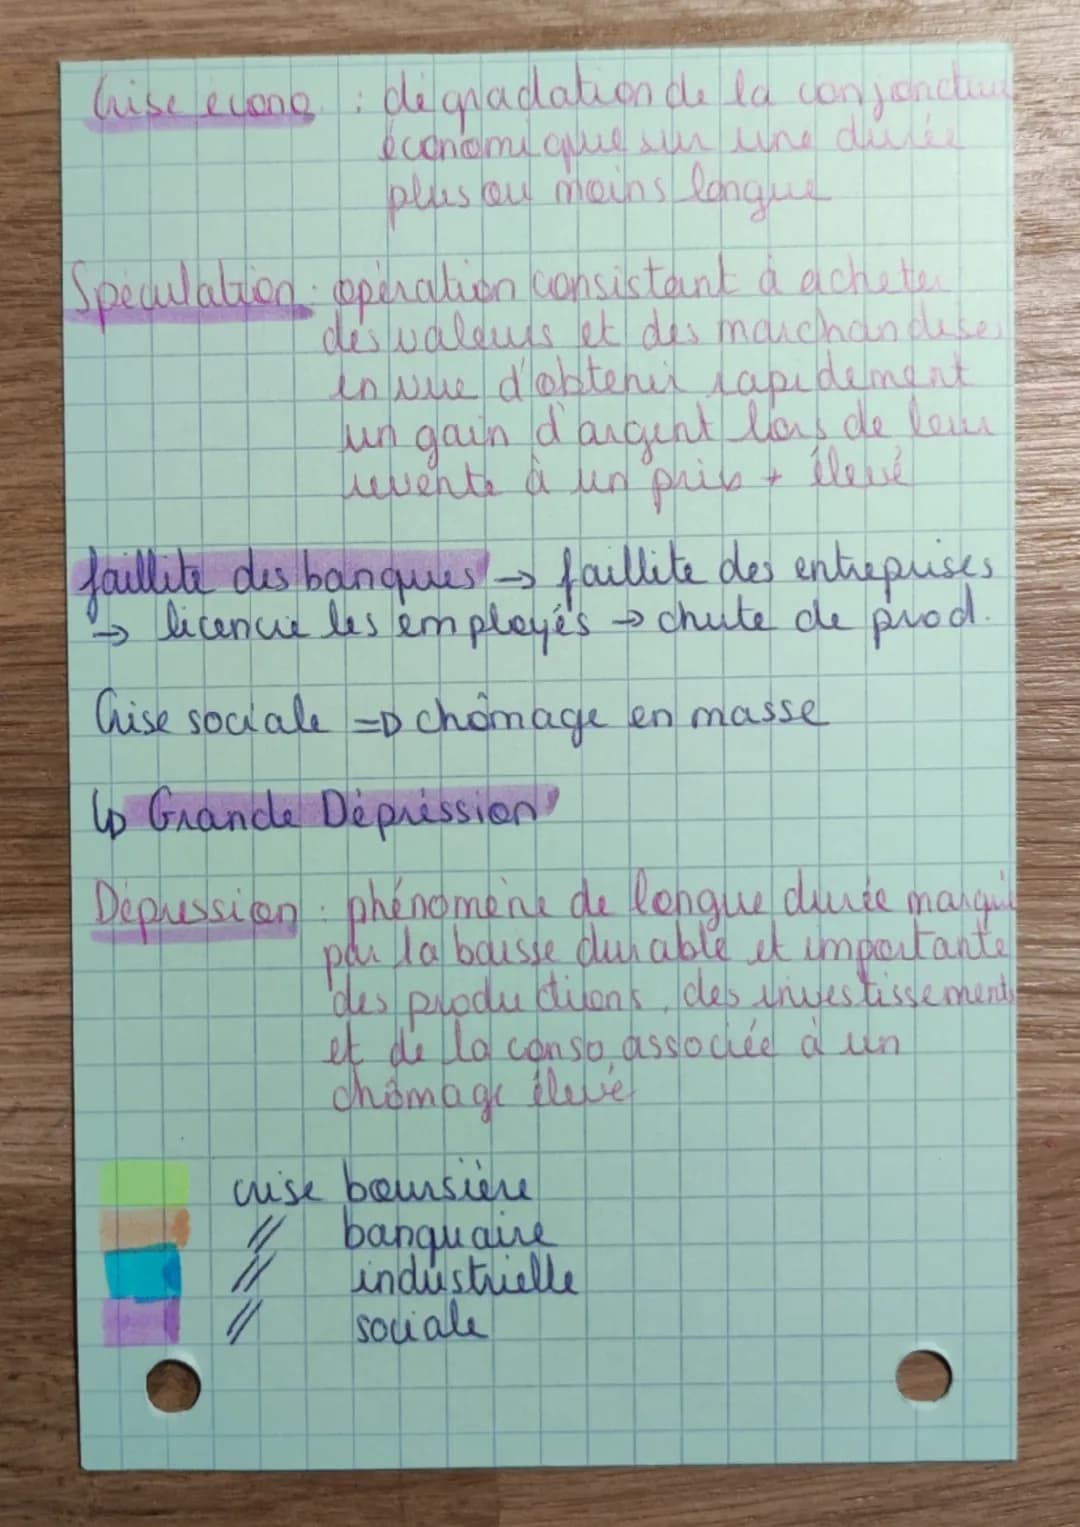 Crise écono. : dégradation de la conjoncture
économique sur une durée
plus ou moins longue
Spéculation : opération consistant à acheter
des valeurs et des marchandises
en vue d'obtenir rapidement
un gain d'argent lors de leur
revente à un prix + élevé
faillite des banques → faillite des entreprises
→ licencie les employés → chute de prod.
Crise sociale => chômage en masse
↳ Grande Dépréssion
Dépression : phénomène de longue durée marqué
par la baisse durable et importante
des productions, des investissements
et de la conso, associée à un
chômage élevé
crise boursière
// banquaire
// industrielle
// sociale